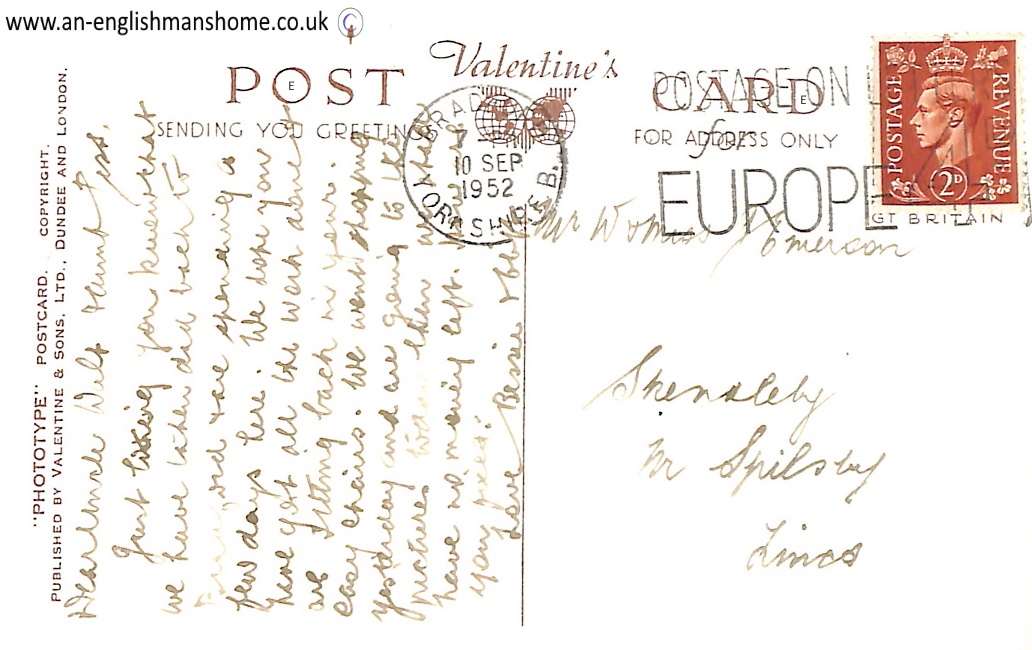 www.an-englishmanshome.co.uk
Valentine's
POST CARD
SENDING YOU GREETINGS
FOR ADDRESS ONLY
BRADFORD
10 SEP
1952
YORKSHIRE B.
POSTAGE ON
for
EUROPE
POSTAGE REVENUE
2D
GT BRITAIN
"PHOTOTYPE" POSTCARD. COPYRIGHT.
PUBLISHED BY VALENTINE & SONS, LTD., DUNDEE AND LONDON.
Dear Uncle Wilf & aunt
Just letting you know that
we have taken dad back to
and are spending a
few days here. We hope you
have got all the work done &
are sitting back in your
easy chairs. We went shopping
yesterday and are going to the
pictures then when we
have no money left.
you
Love Bessie &
Mr W & Miss J Emerson
Skendleby
Nr Spilsby
Lincs